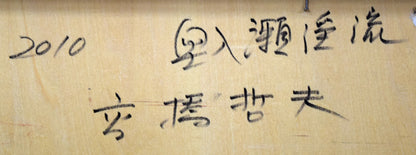 2010 奥入瀬渓流
高橋哲夫